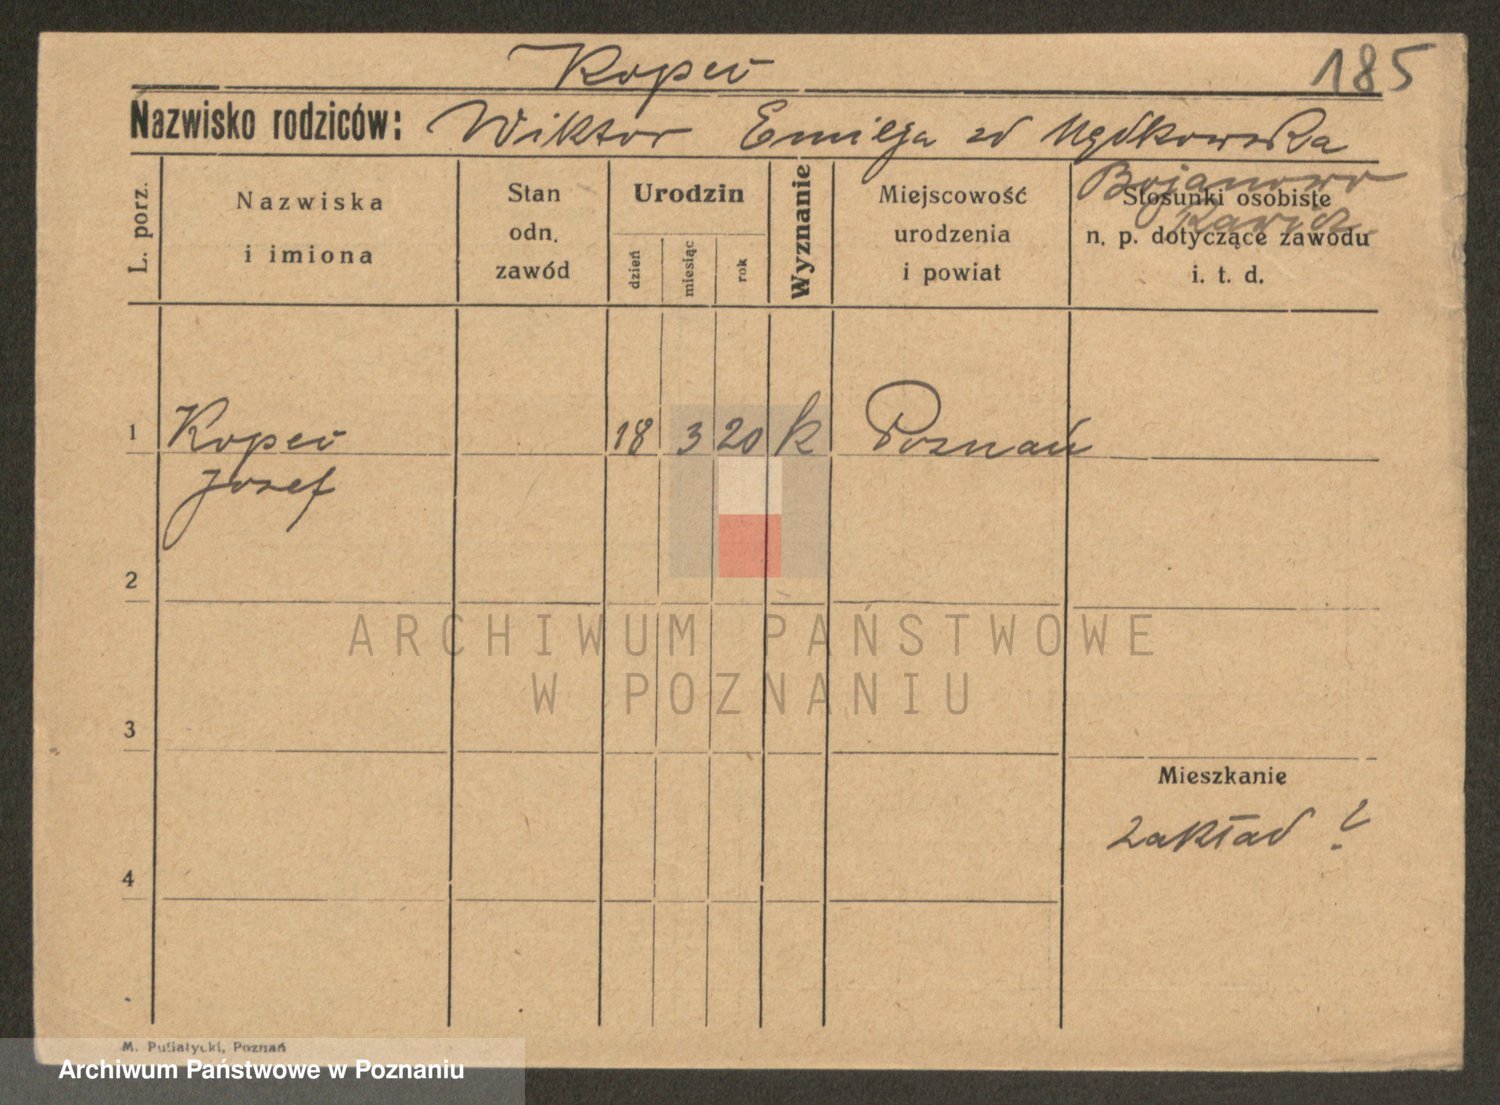 Kopeć
185
Nazwisko rodziców: Wiktor Emilja zd
Bojanowo
L. porz.
Nazwiska
i imiona
Stan
odn.
zawód
Urodzin
dzień
miesiąc
rok
Wyznanie
Miejscowość
urodzenia
i powiat
Stosunki osobiste
n. p. dotyczące zawodu
i. t. d.
1 Kopeć 18 3 20 k Poznań
Józef
2
ARCHIWUM PAŃSTWOWE
W POZNANIU
3
Mieszkanie
zakład ?
4
M. Putiatycki, Poznań
Archiwum Państwowe w Poznaniu